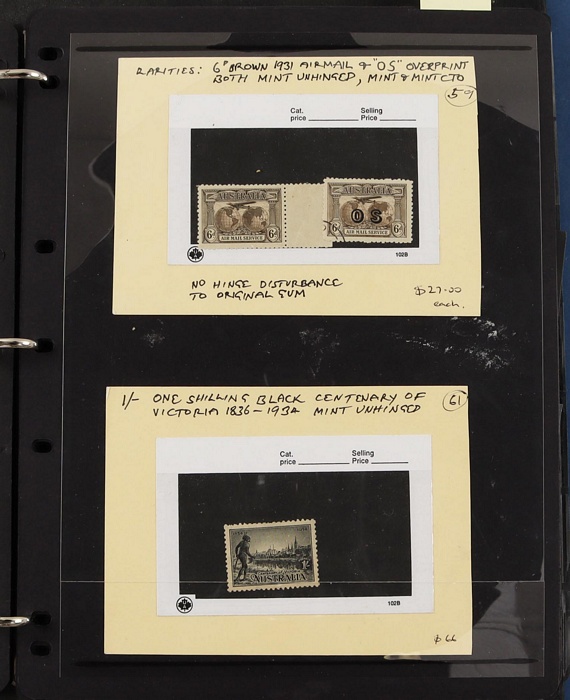 RARITIES: 6ᴰ BROWN 1931 AIRMAIL & "OS" OVERPRINT
BOTH MINT UNHINGED, MINT & MINT CTO
59
Cat. price
Selling Price
AUSTRALIA
6D
6D
AIR MAIL SERVICE
AUSTRALIA
OS
6D
6D
AIR MAIL SERVICE
102B
NO HINGE DISTURBANCE
TO ORIGINAL GUM
$27.00
each.
1/- ONE SHILLING BLACK CENTENARY OF
VICTORIA 1836-1934 MINT UNHINGED
61
Cat. price
Selling Price
AUSTRALIA
102B
$66